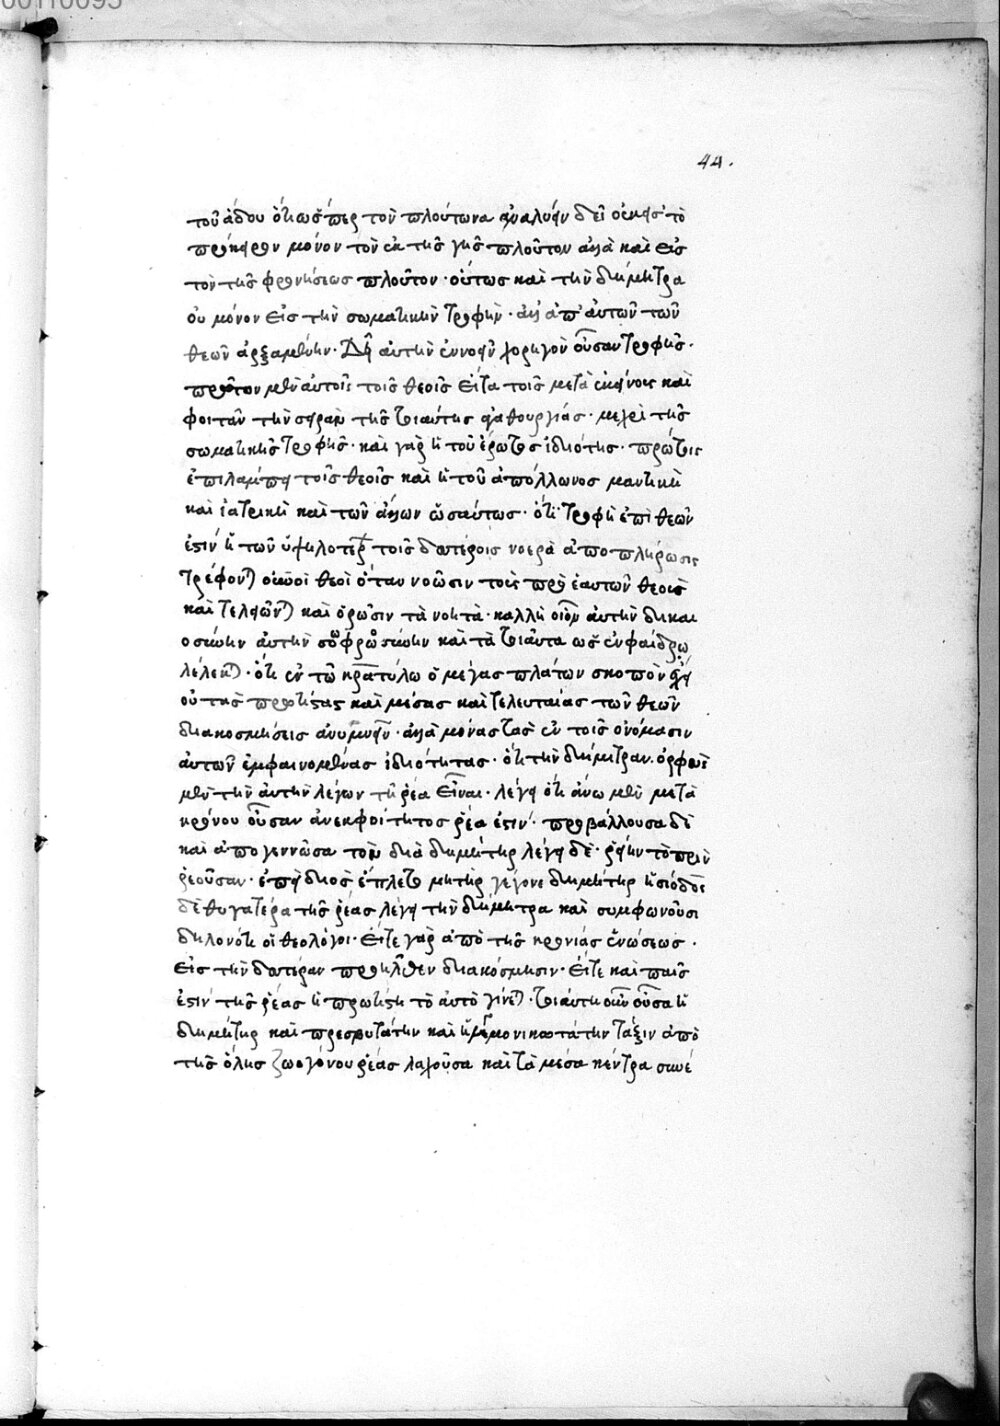 00110095
44.
τοῦ ἅδου ὅτι ὥσπερ τὸν πλούτωνα ἀναλύειν δεῖ οὐκ εἰς τὸ
πρόχειρον μόνον τὸν ἐκ τῆς γῆς πλοῦτον ἀλλὰ καὶ εἰς
τὸν τῆς φρονήσεως πλοῦτον· οὕτως καὶ τὴν δήμητρα
οὐ μόνον εἰς τὴν σωματικὴν τροφὴν· ἀλλ ἀπ' αὐτῶν τῶν
θεῶν ἀρξαμένην· Δεῖ αὐτὴν ἐννοεῖν χορηγὸν οὖσαν τροφῆς·
πρῶτον μὲν αὐτοῖς τοῖς θεοῖς εἶτα τοῖς μετὰ ἐκείνοις καὶ
φοιτᾶν τὴν σειρὰν τῆς τοιαύτης ἀγαθουργίας· μέχρι τῆς
σωματικῆς τροφῆς· καὶ γὰρ ἡ τοῦ ἔρωτος ἰδιότης· πρώτοις
ἐπιλάμπει τοῖς θεοῖς καὶ ἡ τοῦ ἀπόλλωνος μαντικὴ
καὶ ἰατρικὴ καὶ τῶν ἄλλων ὡσαύτως· ὅτι τροφὴ ἐπὶ θεῶν
ἐστὶν ἡ τῶν ὑψηλοτέρων τοῖς δευτέροις νοερὰ ἀποπλήρωσις
τρέφονται οὖν οἱ θεοὶ ὅταν νοῶσιν τοὺς πρὸ ἑαυτῶν θεοὺς
καὶ τελειῶνται καὶ ὁρῶσιν τὰ νοητὰ· κάλλη οἷον αὐτὴν δικαι
οσύνην αὐτὴν σωφροσύνην καὶ τὰ τοιαῦτα ὡς ἐν φαίδρῳ
λέλεκται· ὅτι ἐν τῶ κρατύλω ὁ μέγας πλάτων σκοπὸν ἔχει
οὐ τὰς πρωτίστας καὶ μέσας καὶ τελευταίας τῶν θεῶν
διακοσμήσεις ἀνυμνεῖν· ἀλλὰ μόνας τὰς ἐν τοῖς ὀνόμασιν
αὐτῶν ἐμφαινομένας ἰδιότητας· ὅτι τὴν δήμητραν· ὀρφεὺς
μὲν τὴν αὐτὴν λέγων τῆ ρέα εἶναι· λέγει ὅτι ἄνω μὲν μετὰ
κρόνου οὖσαν ἀνεκφοίτητος ῥέα ἐστίν· προβάλλουσα δὲ
καὶ ἀπογεννῶσα τὸν δία δημήτηρ λέγει δὲ· ῥείην τὸ πρὶν
ῥεοῦσαν· ἐπεὶ διὸς ἔπλετο μήτηρ γέγονε δημήτηρ ἡσίοδος
δὲ θυγατέρα τῆς ῥέας λέγει τὴν δήμητρα καὶ συμφωνοῦσι
δηλονότι οἱ θεολόγοι· εἴτε γὰρ ἀπὸ τῆς κρονίας ἑνώσεως·
εἰς τὴν δευτέραν προῆλθεν διακόσμησιν· εἴτε καὶ παῖς
ἐστὶν τῆς ῥέας ἡ πρωτίστη τὸ αὐτὸ γίνεται· τοιαύτη οὖν οὖσα ἡ
δημήτηρ καὶ πρεσβυτάτην καὶ ἡγεμονικωτάτην τάξιν ἀπὸ
τῆς ὅλης ζωογόνου ῥέας λαχοῦσα καὶ τὰ μέσα κέντρα συνέ